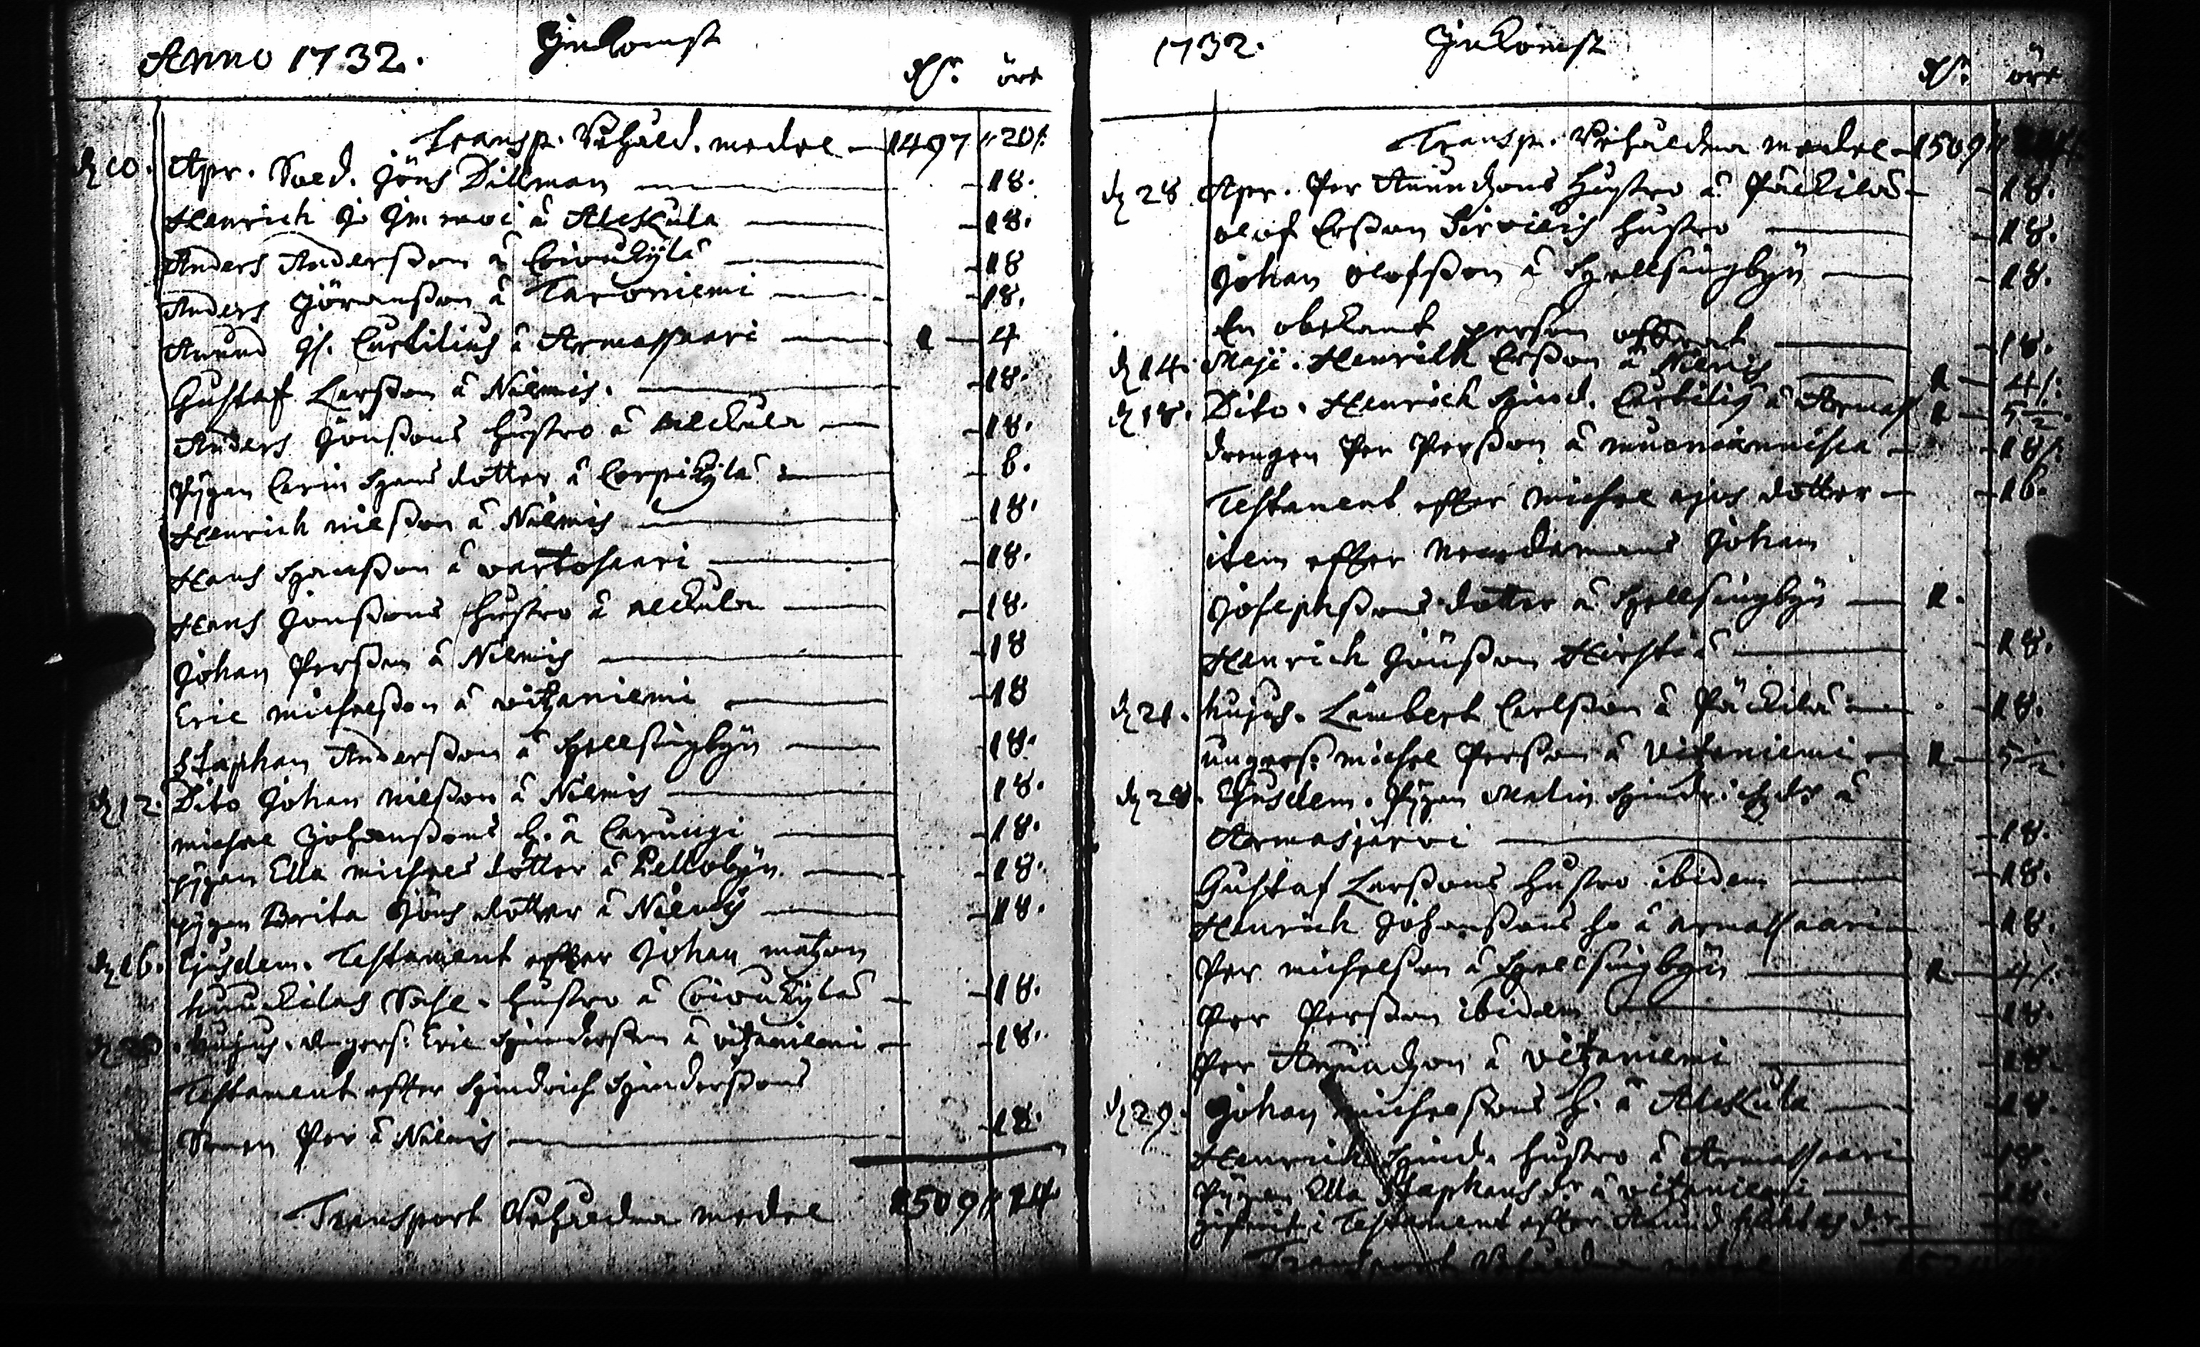 Anno 1732. Inkomst
dlr. öre
Transp. Behåld. medel 1497 " 20
d 10. Apr. Sold. Jöns Dillman - 18.
Henrich å Aleskula - 18.
Anders Andersson å Coivukylä - 18
Anders Göransson å Tarvoniemi - 18.
Anund Curtilius å Armassaari 1 - 4
Gustaf Larsson å Niemis. - 18.
Anders Jönssons hustro å Aleckula - 18.
Pigan Carin Hans dotter å Corpikylä - 6.
Henrich nilsson å Niemis - 18.
Hans Hansson å vartosaari - 18.
Hans Jönssons hustro å Aleckula - 18.
Johan Persson å Niemis - 18
Eric michelsson å vitzaniemi - 18
Staphan Andersson å Hellsingbyn - 18.
d 12. Dito Johan nilsson å Niemis - 18.
michel Johanssons h. å Carungi - 18.
pigan Ella michels dotter å Pellobyn - 18.
pigan Brita Jöns dotter å Niemis - 18.
d 16. Ejusdem. Testament efter Johan matzon
hustro å Coivukylä - 18.
hujus. ungers. Eric Hindersson å vitzaniemi - 18.
Testament efter Hindrich Hinderssons
Sonen Per å Niemis - 18.
Transport Behåldna medel 1509 " 14
1732. Inkomst
dlr. öre
Transp. Behåldna medel 1509 "
d 28 Apr. Per Anundzons hustro å Päckilä - 18.
Olof Ersson hustro - 18.
Johan Olofsson å Hellsingbyn - 18.
En obekant person offrat - 18.
d 14. Maji. Henrich Ersson å Niemis 1 - 4
d 18. Dito. Henrich Hind. Curtilius å Armas 1 - 5 1/2.
drengen Per Persson å muonioniska - 18
Testament efter michel dotter - 16.
item efter Nemdemans Johan
Josephssons dotter å Hellsingbyn 1.
Henrich Jönsson - 18.
d 21. hujus. Lambert Carlsson å Päckilä - 18.
ungers: michel Persson å Vitzaniemi 1 - 5 1/2.
Ejusdem. Pigan Malin Hindrichzdr å
Armasjärvi - 18.
Gustaf Larssons hustro ibidem - 18.
Henrich Johanssons ho å armassaari - 18.
Per michelsson å Hellsingbyn 1 - 4
Per Persson ibidem - 18.
Per Anundzon å vitzaniemi - 18.
d 29. Johan michelssons h. å Aleskula - 18.
Henrich Hind. hustro å Armassaari - 18.
Pigan Ella Staphans dr å vitzaniemi - 18.
i Testament efter Anund
Transport Behåldna medel